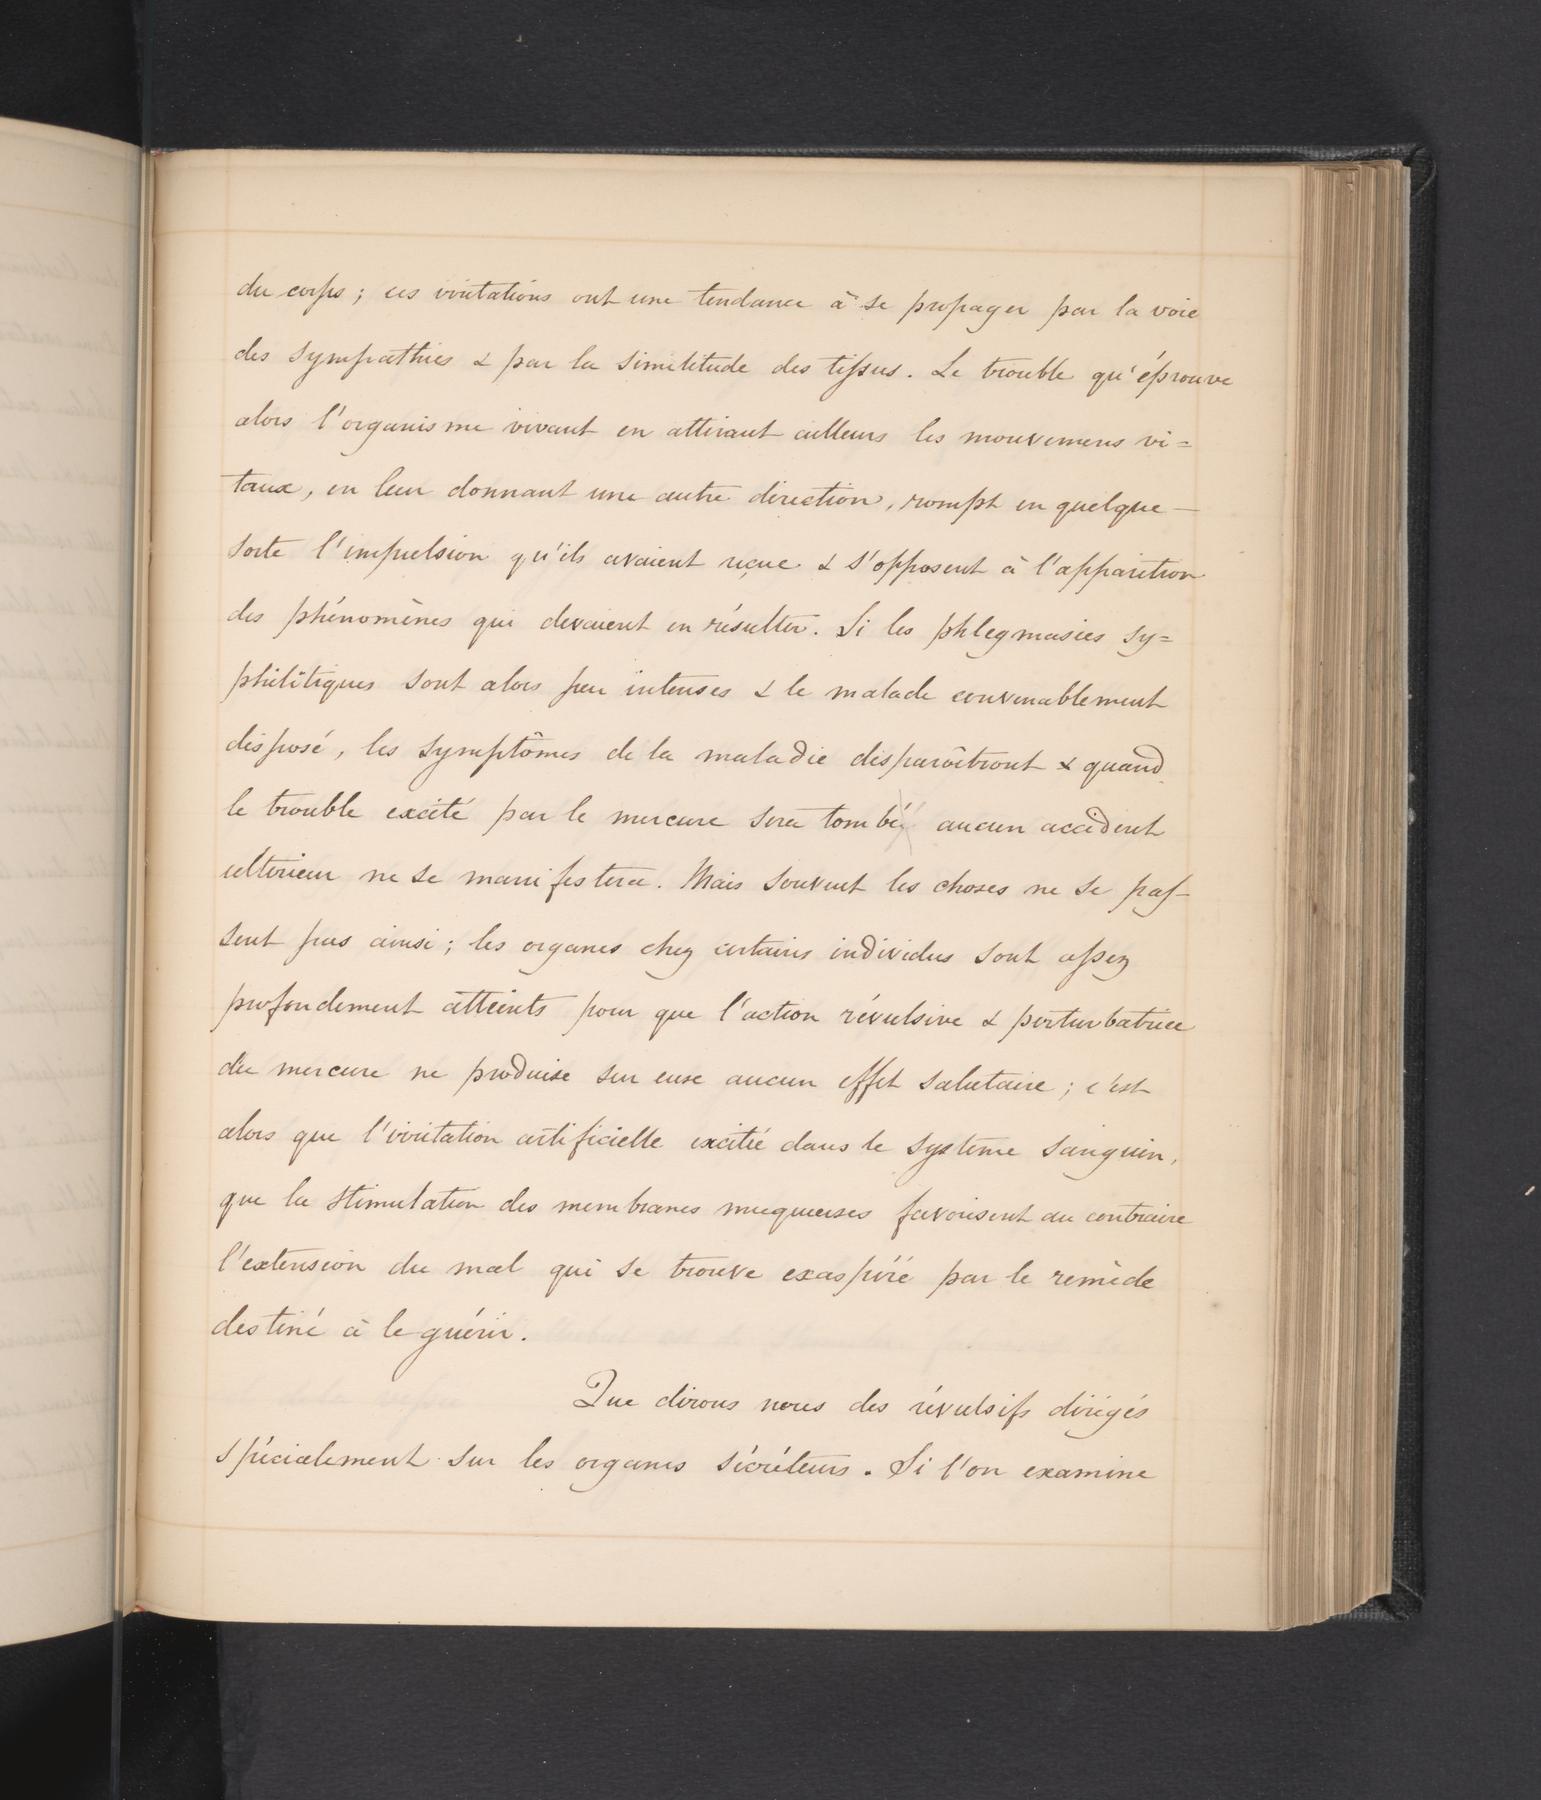 du corps ; ces irritations ont une tendance à se propager par la voie
des sympathies & par la similitude des tissus. Le trouble qu'éprouve
alors l'organisme vivant en attirant ailleurs les mouvemens vi=
taux, en leur donnant une autre direction, rompt en quelque—
sorte l'impulsion qu'ils avaient reçue & s'opposent à l'apparition
des phénomènes qui devaient en résulter. Si les phlegmasies sy=
philitiques sont alors peu intenses & le malade convenablement
disposé, les symptômes de la maladie disparaîtront & quand
le trouble excité par le mercure sera tombé aucun accident
ultérieur ne se manifestera. Mais souvent les choses ne se pas-
sent pas ainsi ; les organes chez certains individus sont assez
profondement atteints pour que l'action révulsive & perturbatrice
du mercure ne produise sur eux aucun effet salutaire ; c'est
alors que l'irritation artificielle excitée dans le système sanguin,
que la stimulation des membranes muqueuses favorisent au contraire
l'extension du mal qui se trouve exaspéré par le remède
destiné à le guérir.
Que dirons nous des révulsifs dirigés
spécialement sur les organes sécréteurs. Si l'on examine